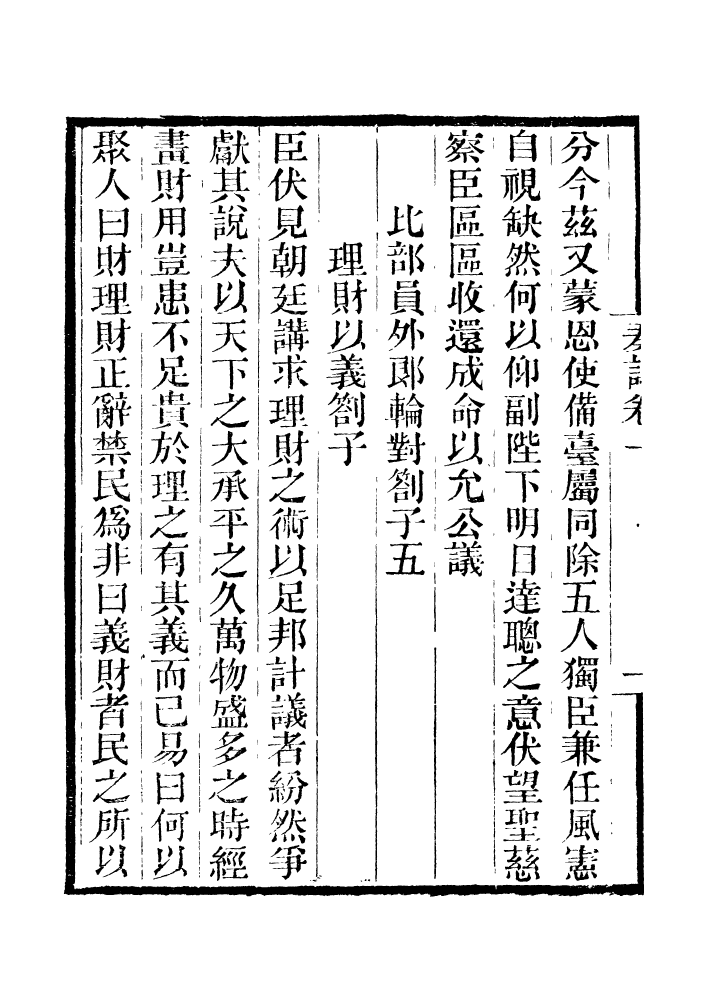 奏議卷一
分今茲又蒙恩使備臺屬同除五人獨臣兼任風憲
自視缺然何以仰副陛下明目達聰之意伏望聖慈
察臣區區收還成命以允公議
比部員外郎輪對劄子五
理財以義劄子
臣伏見朝廷講求理財之術以足邦計議者紛然爭
獻其說夫以天下之大承平之久萬物盛多之時經
畫財用豈患不足貴於理之有其義而已易曰何以
聚人曰財理財正辭禁民為非曰義財者民之所以